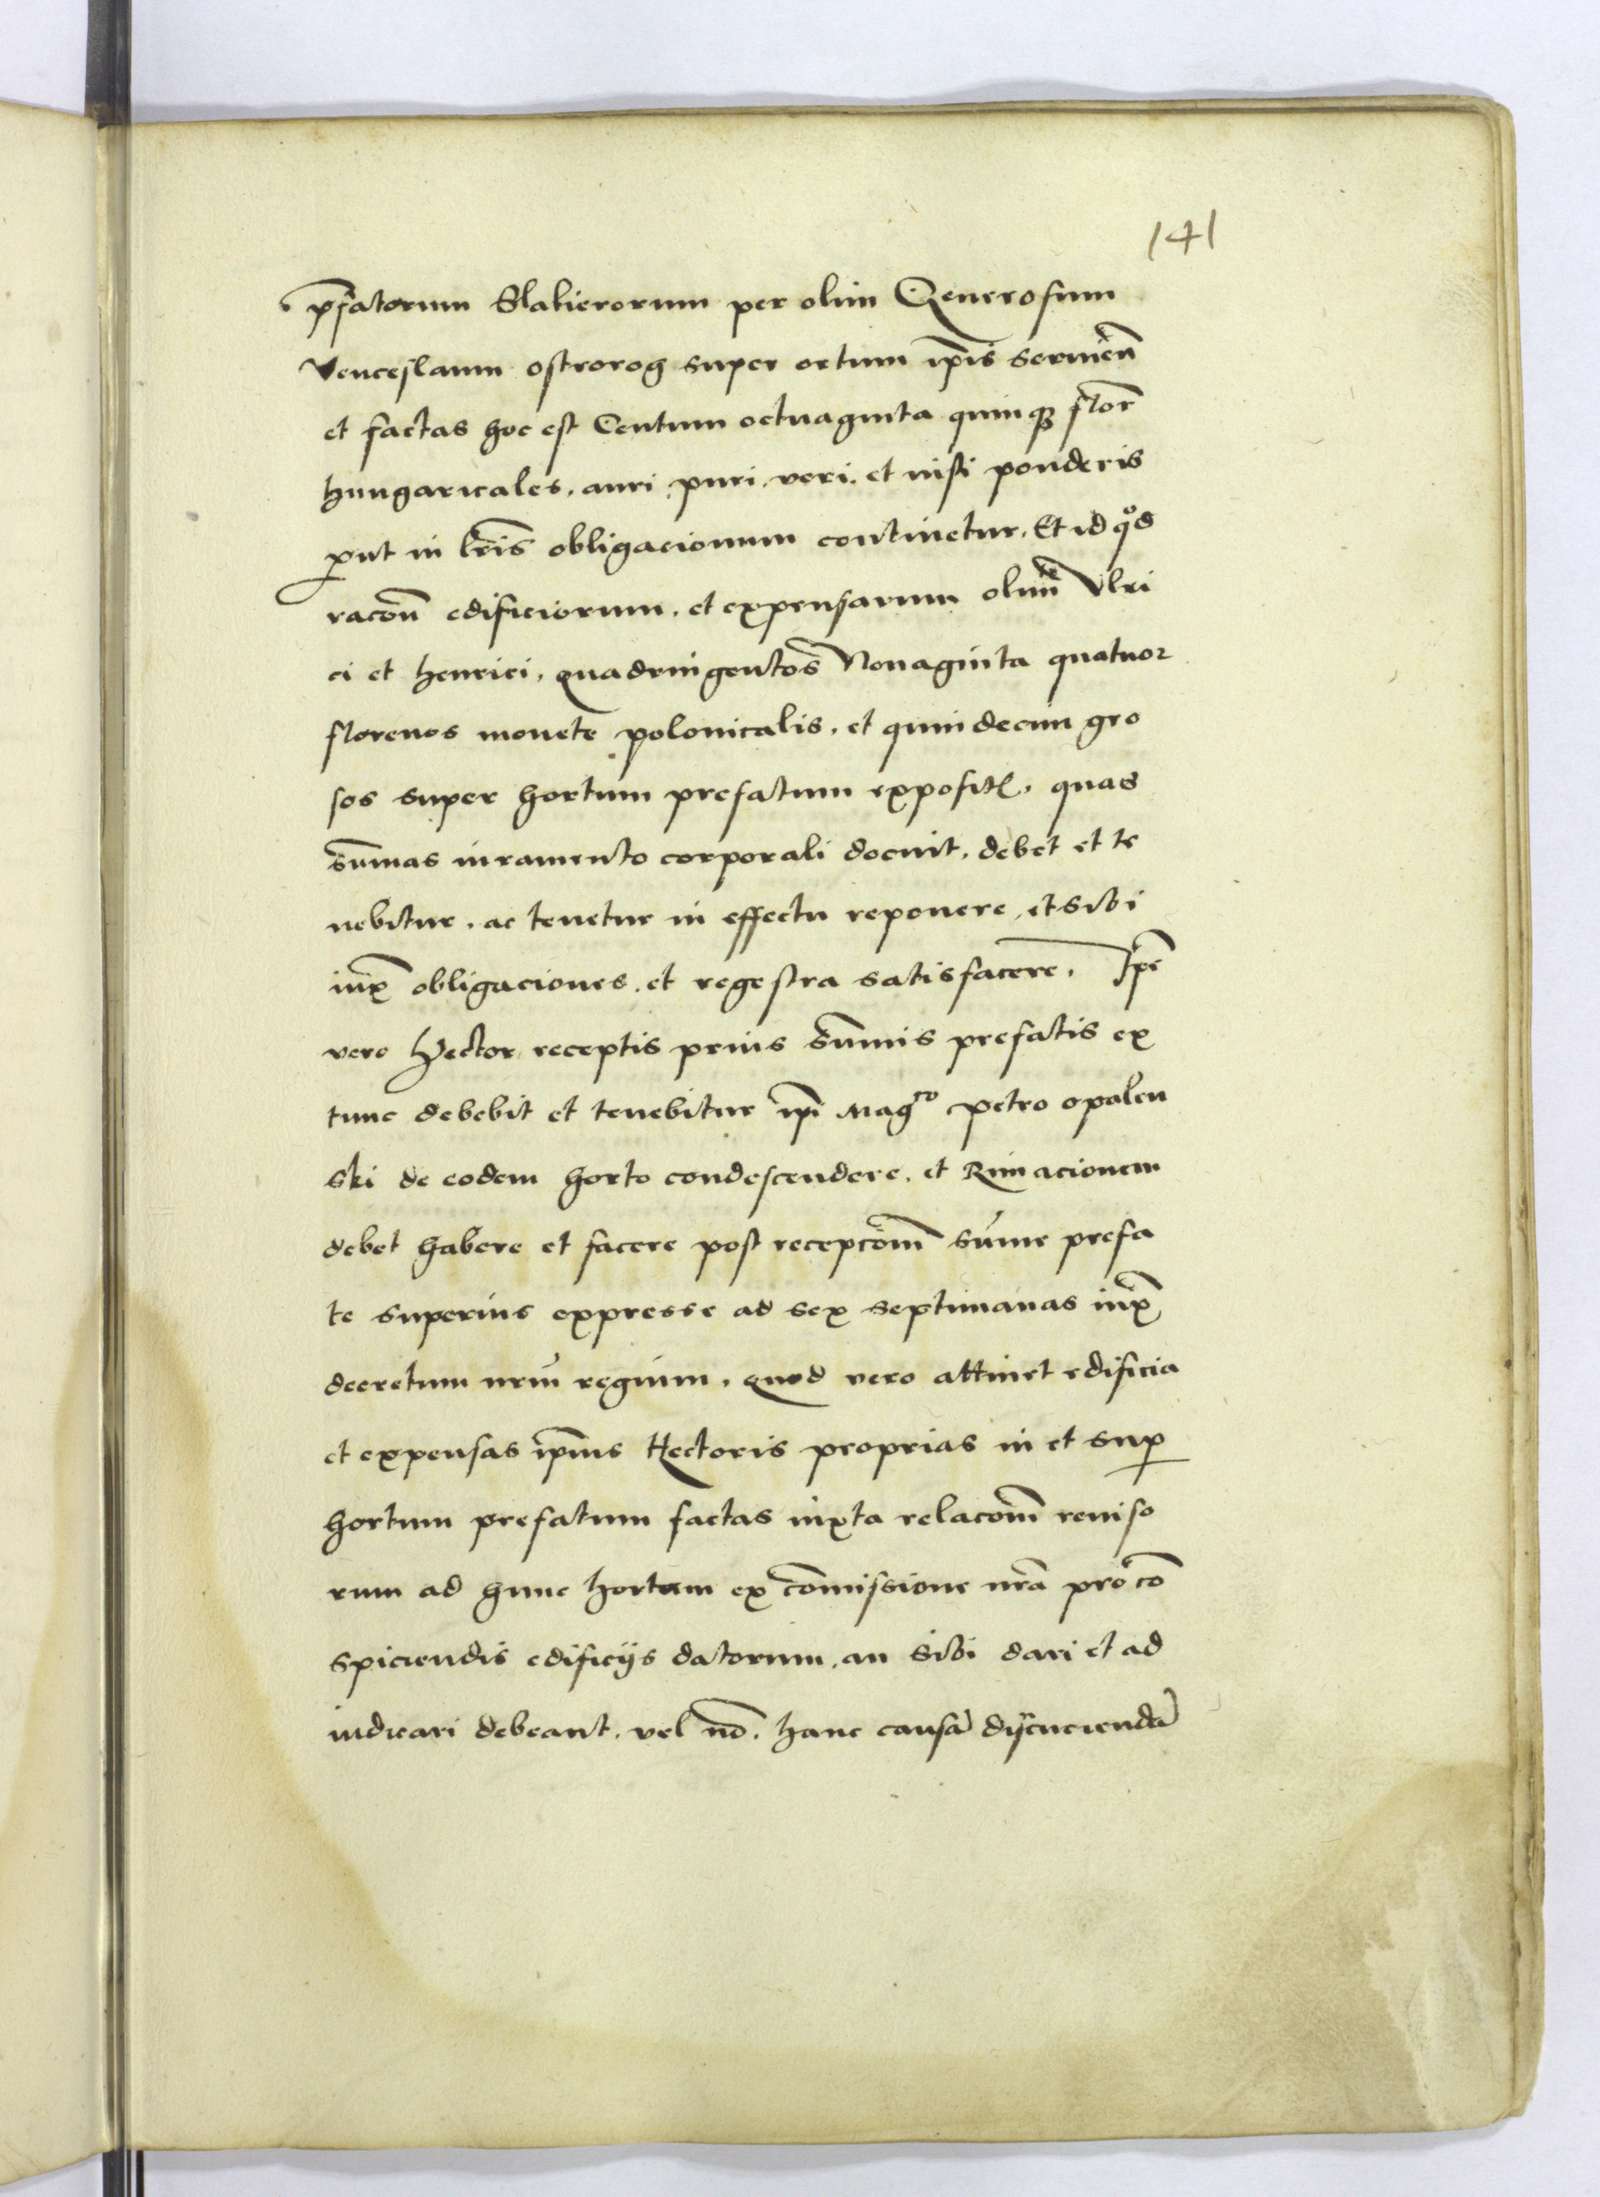 141
p̄fatorum Slatierorum per olim Generosum
Venceslaum ostrorog super ortum ip̄is sermēn̄
et factas hoc est Centum octuaginta quinqꝫ flor̄
hungaricales. auri puri. veri. et iusti ponderis
ꝓut in lr̄is obligacionum continetur. Et id qͦd
racōn̄ edificiorum. et expensarum olim̄ Vlri
ci et henrici. quadringentos Nonaginta quatuor
florenos monete polonicalis. et quindecim gro
sos super hortum prefatum exposit̄. quas
sum̄as iuramento corporali docuit. debet et te
nebitur. ac tenetur in effectu reponere. et sibi
iux̄ obligaciones. et regestra satisfacere. Ip̄e
vero Hector receptis prius sum̄is prefatis ex
tunc debebit et tenebitur ip̄i Magͨᵒ petro opalen
ski de eodem horto condescendere. et Rimacionem
debet habere et facere post recepcōm̄ sum̄e prefa
te superius expresse ad sex septimanas iux̄
decretum nr̄m regium. quod vero attinet edificia
et expensas ip̄ius Hectoris proprias in et suꝑ
hortum prefatum factas iuxta relacōm̄ reuiso
rum ad hunc hortum ex com̄issione nr̄a pro cō
spiciendis edificijs datorum. an sibi dari et ad
iudicari debeant. vel nō. hanc causā discuciendā